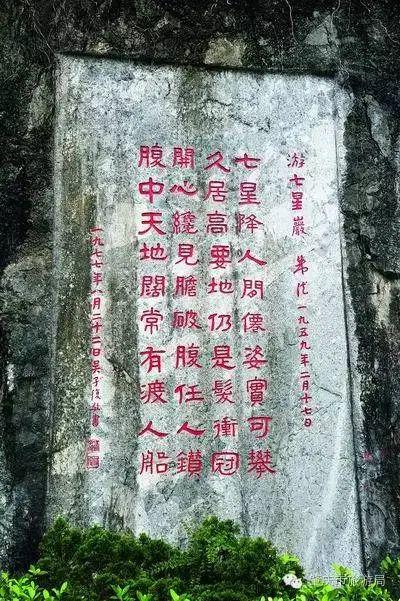 游七星巖 朱德 一九五九年二月十七日
七星降人間僊姿實可攀
久居高要地仍是髮衝冠
開心纔見膽破腹任人鑽
腹中天地闊常有渡人船
一九七七年八月二十二日吳子復敬書
肇庆市旅游局